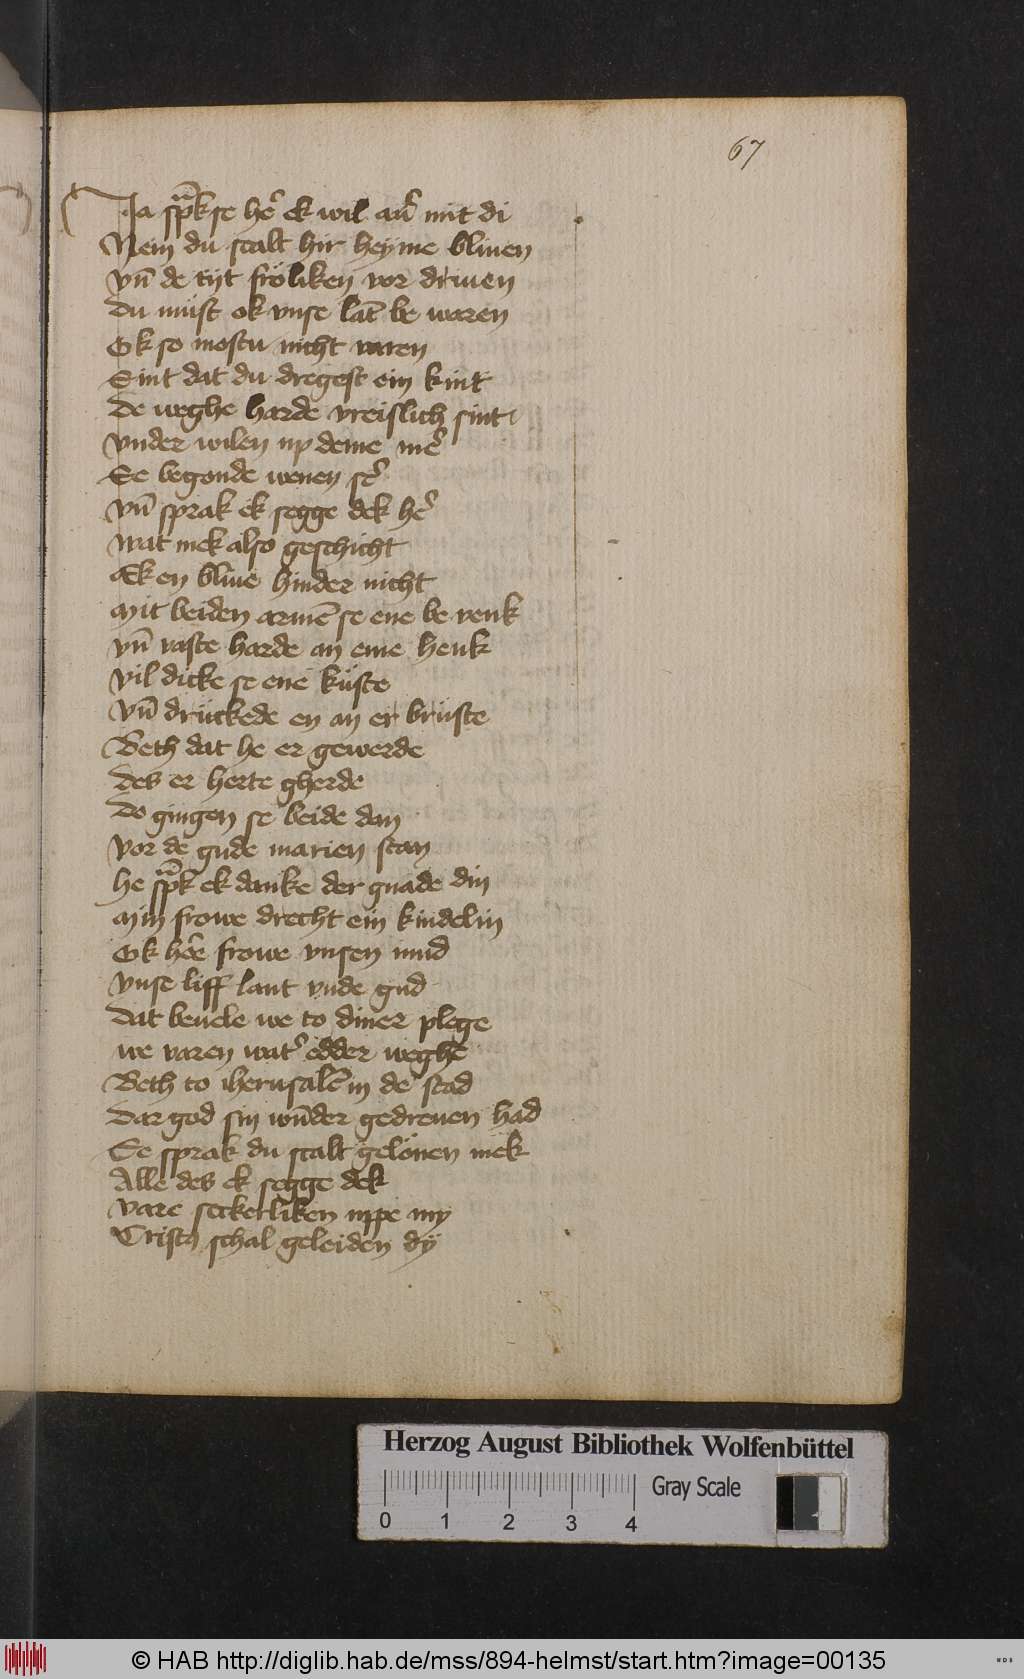 67
Ja sp̄k se he᷎ ek wil au᷎ mit di
Nein du scalt hir heyme bliuen
vn̄ de tijt fröliken vor driuen
du müst ok vnse lāt be waren
Ok so mostu nicht varen
Sint dat du dregest ein kint
de weghe harde vreislich sint
vnder wilen up deme me᷎
Se begonde wenen se᷎
vn̄ sprak ek segge dek he᷎
wat mek also geschicht
Ek en bliue hinder nicht
Mit beiden armē se ene be venk
vn̄ vaste harde an eme henk
vil dicke se enē küste
vn̄ drückede en an er brüste
Beth dat he er gewerde
des er herte gherde
do gingen se beide dan
vor de gude marien stan
he sp̄k ek danke der gnade din
Min frowe drecht ein kindelin
Ok hēe frowe vnsen mud
vnse liff lant vnde gud
dat beuele we to diner plege
we varen wat᷎ edder weghe
Beth to iherusalē in de stad
dar god sin wūder gedreuen had
Se sprak du scalt gelönen mek
Alle des ek segge dek
vare seckerliken uppe my
Cristꝯ schal geleiden dÿ
Herzog August Bibliothek Wolfenbüttel
Gray Scale
0 1 2 3 4
© HAB http://diglib.hab.de/mss/894-helmst/start.htm?image=00135